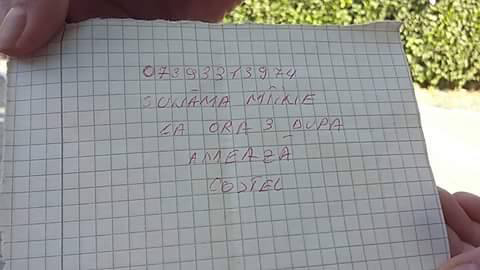 07393313974
SUNĂMA MÎINE
LA ORA 3 DUPA
AMEAZĂ
COSTEL